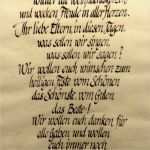 und wecken Freude in aller Herzen.
Ihr lieben Eltern, in diesen Tagen,
was sollen wir singen,
was sollen wir sagen?
Wir wollen euch wünschen zum
heiligen Feste vom Schönen
das Schönste, vom Guten
das Beste!
Wir wollen euch danken für
alle Gaben und wollen
euch immer noch